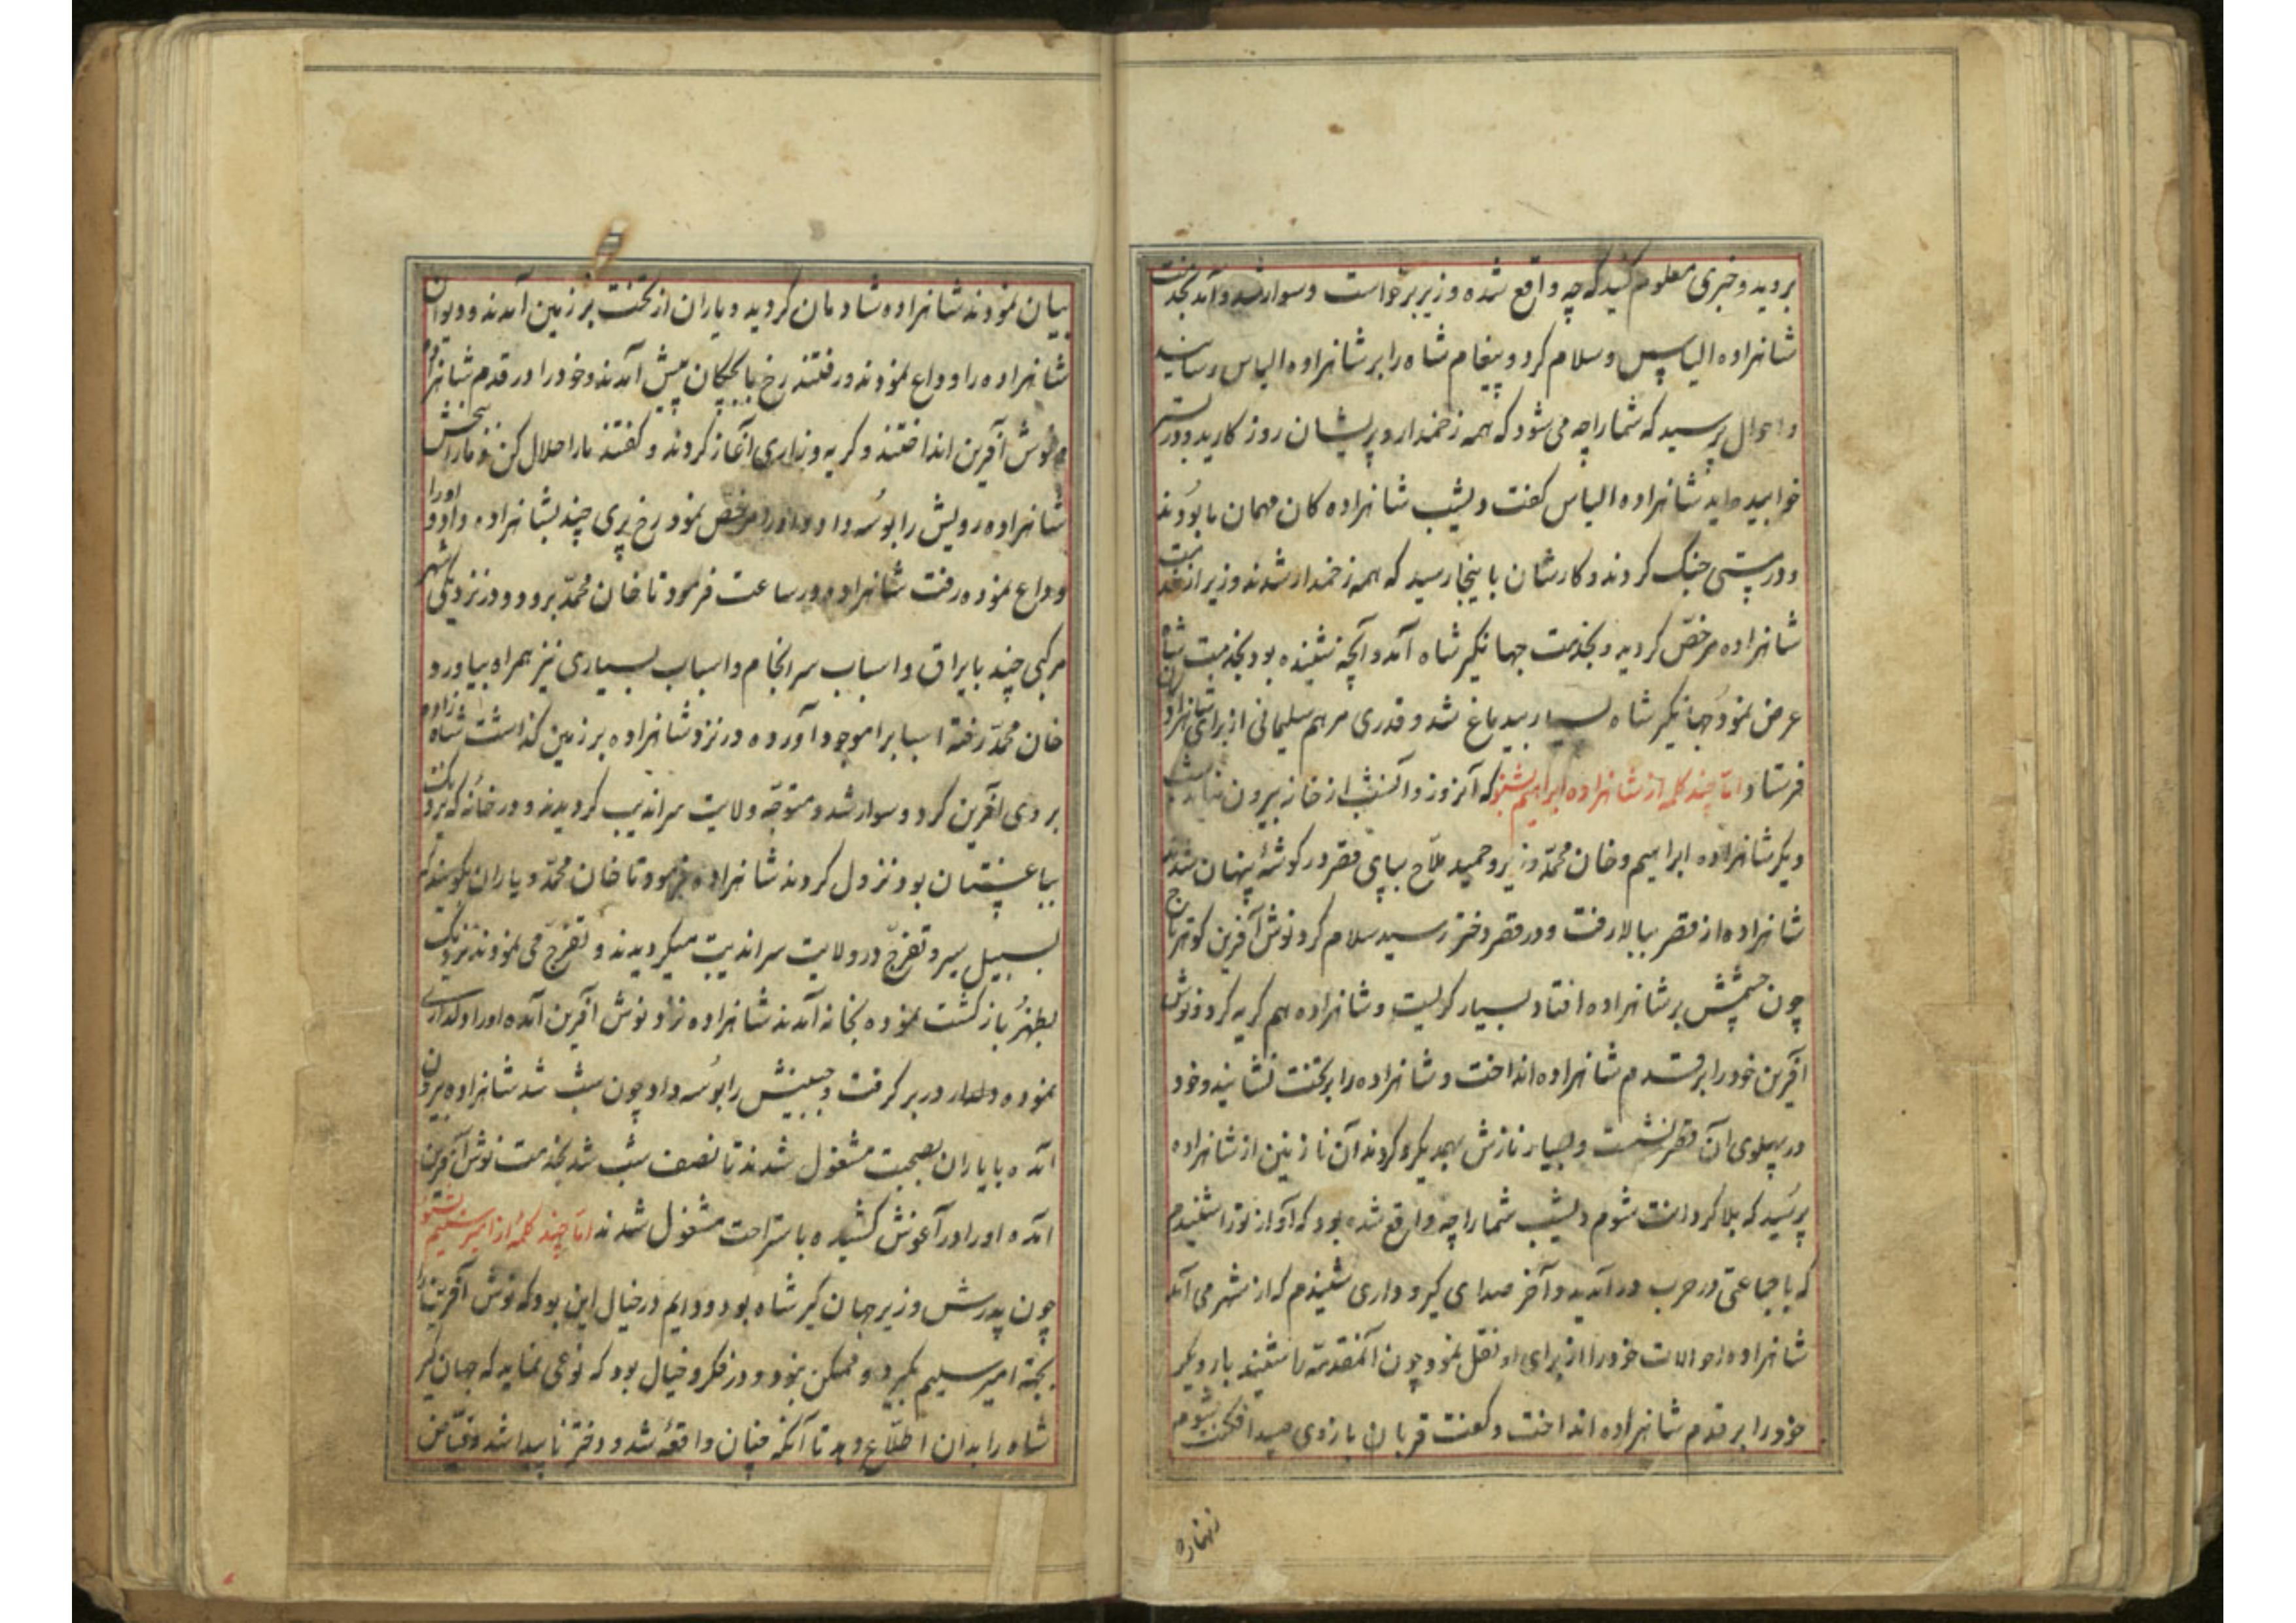 بروید و خبری معلوم کنید که چه واقع شده وزیر برخواست و سوار شد و آمد بخدمت
شاهزاده الیاس و سلام کرد و پیغام شاه را بر شاهزاده الیاس رسانید
و احوال پرسید که شما را چه می شود که همه زخمدار و پریشان روزکارید و در بستر
خوابیده اید شاهزاده الیاس کفت دیشب شاهزاده کان مهمان ما بودند
و در مستی جنک کردند و کارشان باینجا رسید که همه زخمدار شدند وزیر از خدمت
شاهزاده مرخص کردید و بخدمت جهانکیر شاه آمد و آنچه شنیده بود بخدمت شاه
عرض نمود جهانکیر شاه بسیار بیدماغ شد و قدری مرهم سلیمانی از برای شاهزاده کان
فرستاد اما چند کلمه از شاهزاده ابراهیم بشنو که آنروز و آنشب از خانه بیرون نیامد شب
دیکر شاهزاده ابراهیم و خان محمد وزیر و حمید ملاح بپای قصر در کوشهٔ پنهان شدند
شاهزاده از قصر ببالا رفت و در قصر دختر رسید سلام کرد نوش آفرین کوهرتاج
چون چشمش بر شاهزاده افتاد بسیار کریست و شاهزاده هم کریه کرد و نوش
آفرین خود را بر قدم شاهزاده انداخت و شاهزاده را بر تخت نشانید و خود
در پهلوی آن قصر نشست و بسیار نازش بهمدیکر کردند آن نازنین از شاهزاده
پرسید که بلا کردانت شوم دیشب شما را چه واقع شده بود که آواز تو را شنیدم
که با جماعتی در حرب در آمدید و آخر صدای کیر و داری شنیدم که از شهر می آمد
شاهزاده احوالات خود را از برای او نقل نمود چون آنمقدمه را شنید بار دیکر
خود را بر قدم شاهزاده انداخت و کفت قربان بازوی صید افکنت شوم
بیان نمودند شاهزاده شادمان کردید و یاران از تخت بر زمین آمدند و دیوان
شاهزاده را وداع نمودند و رفتند رخ با پیش آمدند و خود را در قدم شاهزاده
و نوش آفرین انداختند و کریه و زاری آغاز کردند و کفتند ما را حلال کن و ما را ببخش
شاهزاده رویش را بوسه داد و او را مرخص نمود رخ پری چند بشاهزاده داد و او را
وداع نموده رفت شاهزاده در ساعت فرمود تا خان محمد برود و در نزدیکی شهر
مرکبی چند با یراق و اسباب سرانجام و اسباب بسیاری نیز همراه بیاورد
خان محمد رفته اسبابرا موجود آورده در نزد شاهزاده بر زمین کذاشت شاهزاده
بر وی آفرین کرد و سوار شد و متوجه ولایت سراندیب کردیدند و در خانهٔ که نزدیک
بباغستان بود نزول کردند شاهزاده فرمود تا خان محمد و یاران
بسبیل سیر و تفرج در ولایت سراندیب میکردیدند و تفرج می نمودند نزدیک
بظهر بازکشت نموده بخانه آمدند شاهزاده نزد نوش آفرین آمده او را دلداری
نموده در بر کرفت و جبینش را بوسه داد چون شب شد شاهزاده بیرون
آمده با یاران بصحبت مشغول شدند تا نصف شب شد بخدمت نوش آفرین
آمده او را در آغوش کشیده باستراحت مشغول شدند اما چند کلمه از امیر سلیم بشنو
چون پدرش وزیر جهان کیر شاه بود و دایم در خیال این بود که نوش آفرین را
بجهة امیر سلیم بکیرد و ممکن نبود و در فکر و خیال بود که نوعی نماید که جهان کیر
شاه را بدان اطلاع دهد تا آنکه چنان واقعهٔ شد و دختر ناپیدا شد وقتی